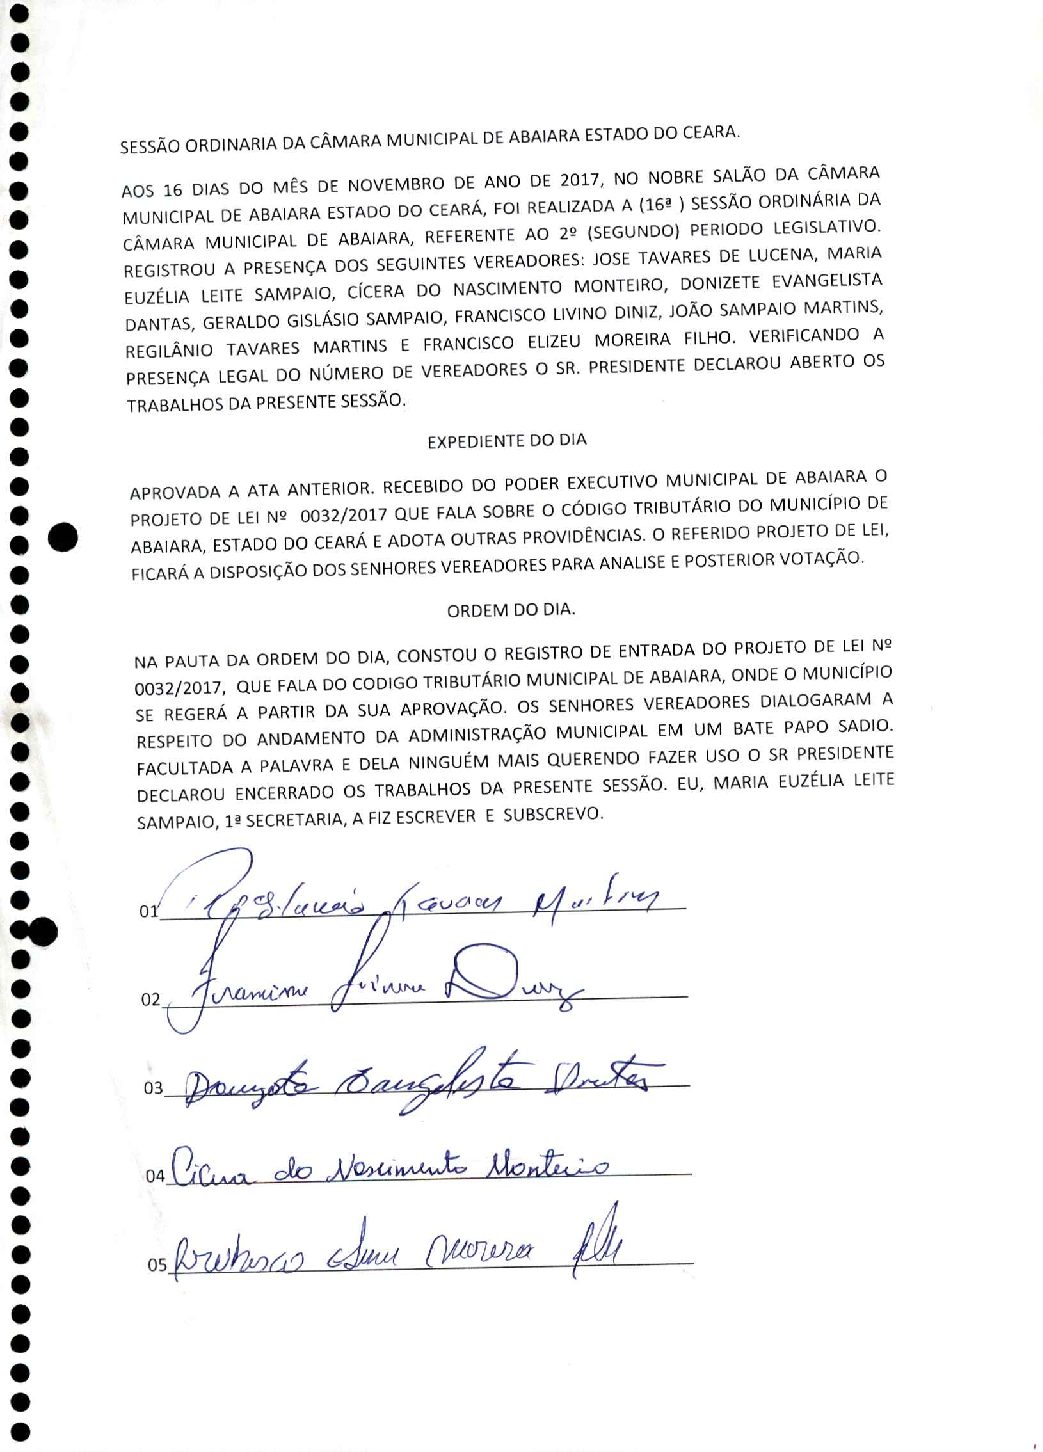 SESSÃO ORDINARIA DA CÂMARA MUNICIPAL DE ABAIARA ESTADO DO CEARA.
AOS 16 DIAS DO MÊS DE NOVEMBRO DE ANO DE 2017, NO NOBRE SALÃO DA CÂMARA
MUNICIPAL DE ABAIARA ESTADO DO CEARÁ, FOI REALIZADA A (16ª ) SESSÃO ORDINÁRIA DA
CÂMARA MUNICIPAL DE ABAIARA, REFERENTE AO 2º (SEGUNDO) PERIODO LEGISLATIVO.
REGISTROU A PRESENÇA DOS SEGUINTES VEREADORES: JOSE TAVARES DE LUCENA, MARIA
EUZÉLIA LEITE SAMPAIO, CÍCERA DO NASCIMENTO MONTEIRO, DONIZETE EVANGELISTA
DANTAS, GERALDO GISLÁSIO SAMPAIO, FRANCISCO LIVINO DINIZ, JOÃO SAMPAIO MARTINS,
REGILÂNIO TAVARES MARTINS E FRANCISCO ELIZEU MOREIRA FILHO. VERIFICANDO A
PRESENÇA LEGAL DO NÚMERO DE VEREADORES O SR. PRESIDENTE DECLAROU ABERTO OS
TRABALHOS DA PRESENTE SESSÃO.
EXPEDIENTE DO DIA
APROVADA A ATA ANTERIOR. RECEBIDO DO PODER EXECUTIVO MUNICIPAL DE ABAIARA O
PROJETO DE LEI Nº 0032/2017 QUE FALA SOBRE O CÓDIGO TRIBUTÁRIO DO MUNICÍPIO DE
ABAIARA, ESTADO DO CEARÁ E ADOTA OUTRAS PROVIDÊNCIAS. O REFERIDO PROJETO DE LEI,
FICARÁ A DISPOSIÇÃO DOS SENHORES VEREADORES PARA ANALISE E POSTERIOR VOTAÇÃO.
ORDEM DO DIA.
NA PAUTA DA ORDEM DO DIA, CONSTOU O REGISTRO DE ENTRADA DO PROJETO DE LEI Nº
0032/2017, QUE FALA DO CODIGO TRIBUTÁRIO MUNICIPAL DE ABAIARA, ONDE O MUNICÍPIO
SE REGERÁ A PARTIR DA SUA APROVAÇÃO. OS SENHORES VEREADORES DIALOGARAM A
RESPEITO DO ANDAMENTO DA ADMINISTRAÇÃO MUNICIPAL EM UM BATE PAPO SADIO.
FACULTADA A PALAVRA E DELA NINGUÉM MAIS QUERENDO FAZER USO O SR PRESIDENTE
DECLAROU ENCERRADO OS TRABALHOS DA PRESENTE SESSÃO. EU, MARIA EUZÉLIA LEITE
SAMPAIO, 1ª SECRETARIA, A FIZ ESCREVER E SUBSCREVO.
01 Regilanio Tavares Martins
02 Francisco Livino Diniz
03 Donizete Evangelista Dantas
04 Cicera do Nascimento Monteiro
05 Francisco Moreira